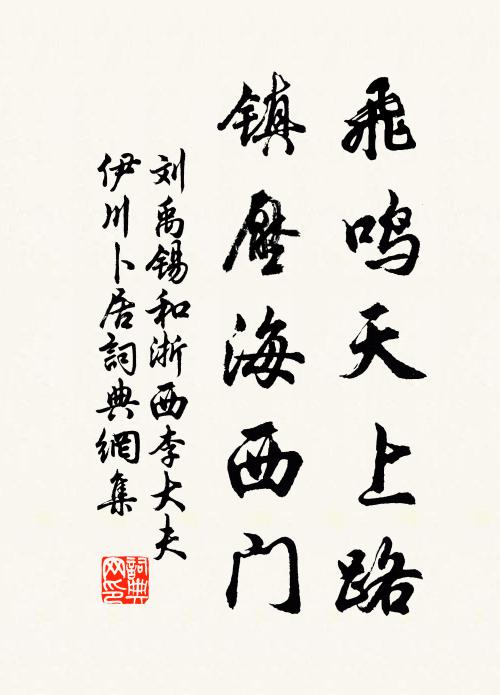 飛鸣天上路
镇压海西门
刘禹锡和浙西李大夫
伊川卜居詞典網集
詞典网印